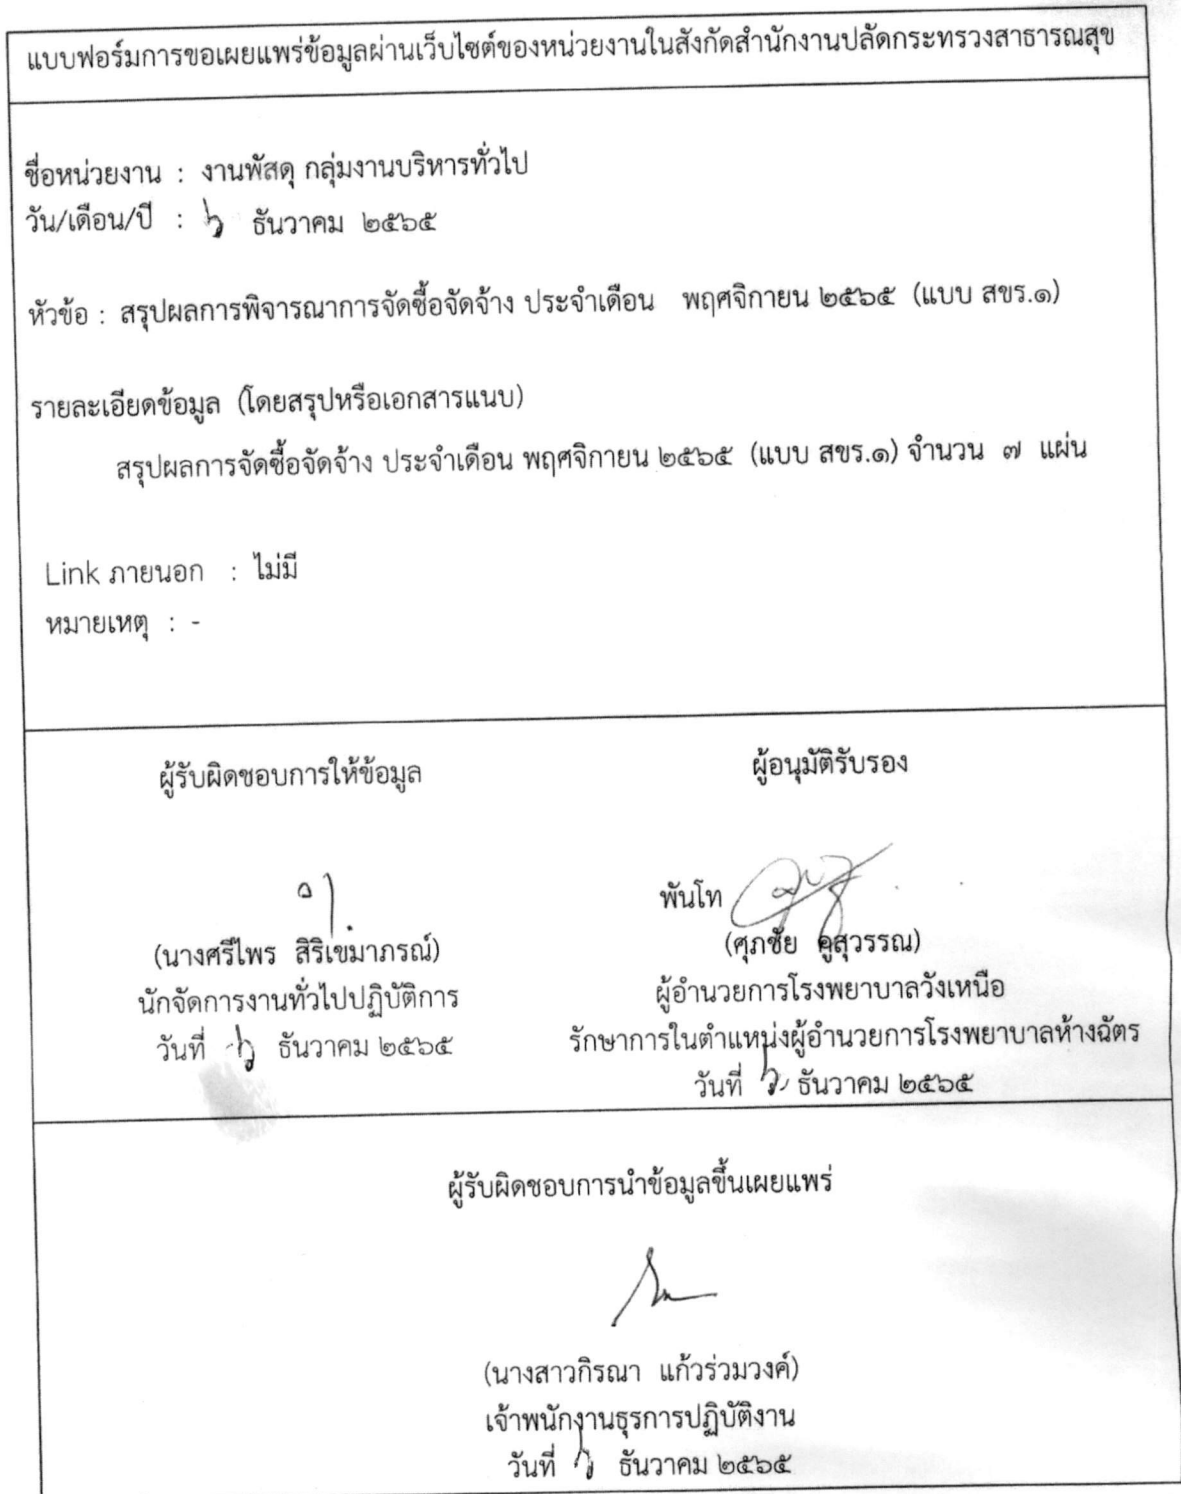 แบบฟอร์มการขอเผยแพร่ข้อมูลผ่านเว็บไซต์ของหน่วยงานในสังกัดสำนักงานปลัดกระทรวงสาธารณสุข
ชื่อหน่วยงาน : งานพัสดุ กลุ่มงานบริหารทั่วไป
วัน/เดือน/ปี : ๖ ธันวาคม ๒๕๖๕
หัวข้อ : สรุปผลการพิจารณาการจัดซื้อจัดจ้าง ประจำเดือน พฤศจิกายน ๒๕๖๕ (แบบ สขร.๑)
รายละเอียดข้อมูล (โดยสรุปหรือเอกสารแนบ)
สรุปผลการจัดซื้อจัดจ้าง ประจำเดือน พฤศจิกายน ๒๕๖๕ (แบบ สขร.๑) จำนวน ๗ แผ่น
Link ภายนอก : ไม่มี
หมายเหตุ : -
ผู้รับผิดชอบการให้ข้อมูล
(นางศรีไพร สิริเขมาภรณ์)
นักจัดการงานทั่วไปปฏิบัติการ
วันที่ ๖ ธันวาคม ๒๕๖๕
ผู้อนุมัติรับรอง
พันโท
(ศุภชัย คูสุวรรณ)
ผู้อำนวยการโรงพยาบาลวังเหนือ
รักษาการในตำแหน่งผู้อำนวยการโรงพยาบาลห้างฉัตร
วันที่ ๖ ธันวาคม ๒๕๖๕
ผู้รับผิดชอบการนำข้อมูลขึ้นเผยแพร่
(นางสาวกิรณา แก้วร่วมวงค์)
เจ้าพนักงานธุรการปฏิบัติงาน
วันที่ ๖ ธันวาคม ๒๕๖๕